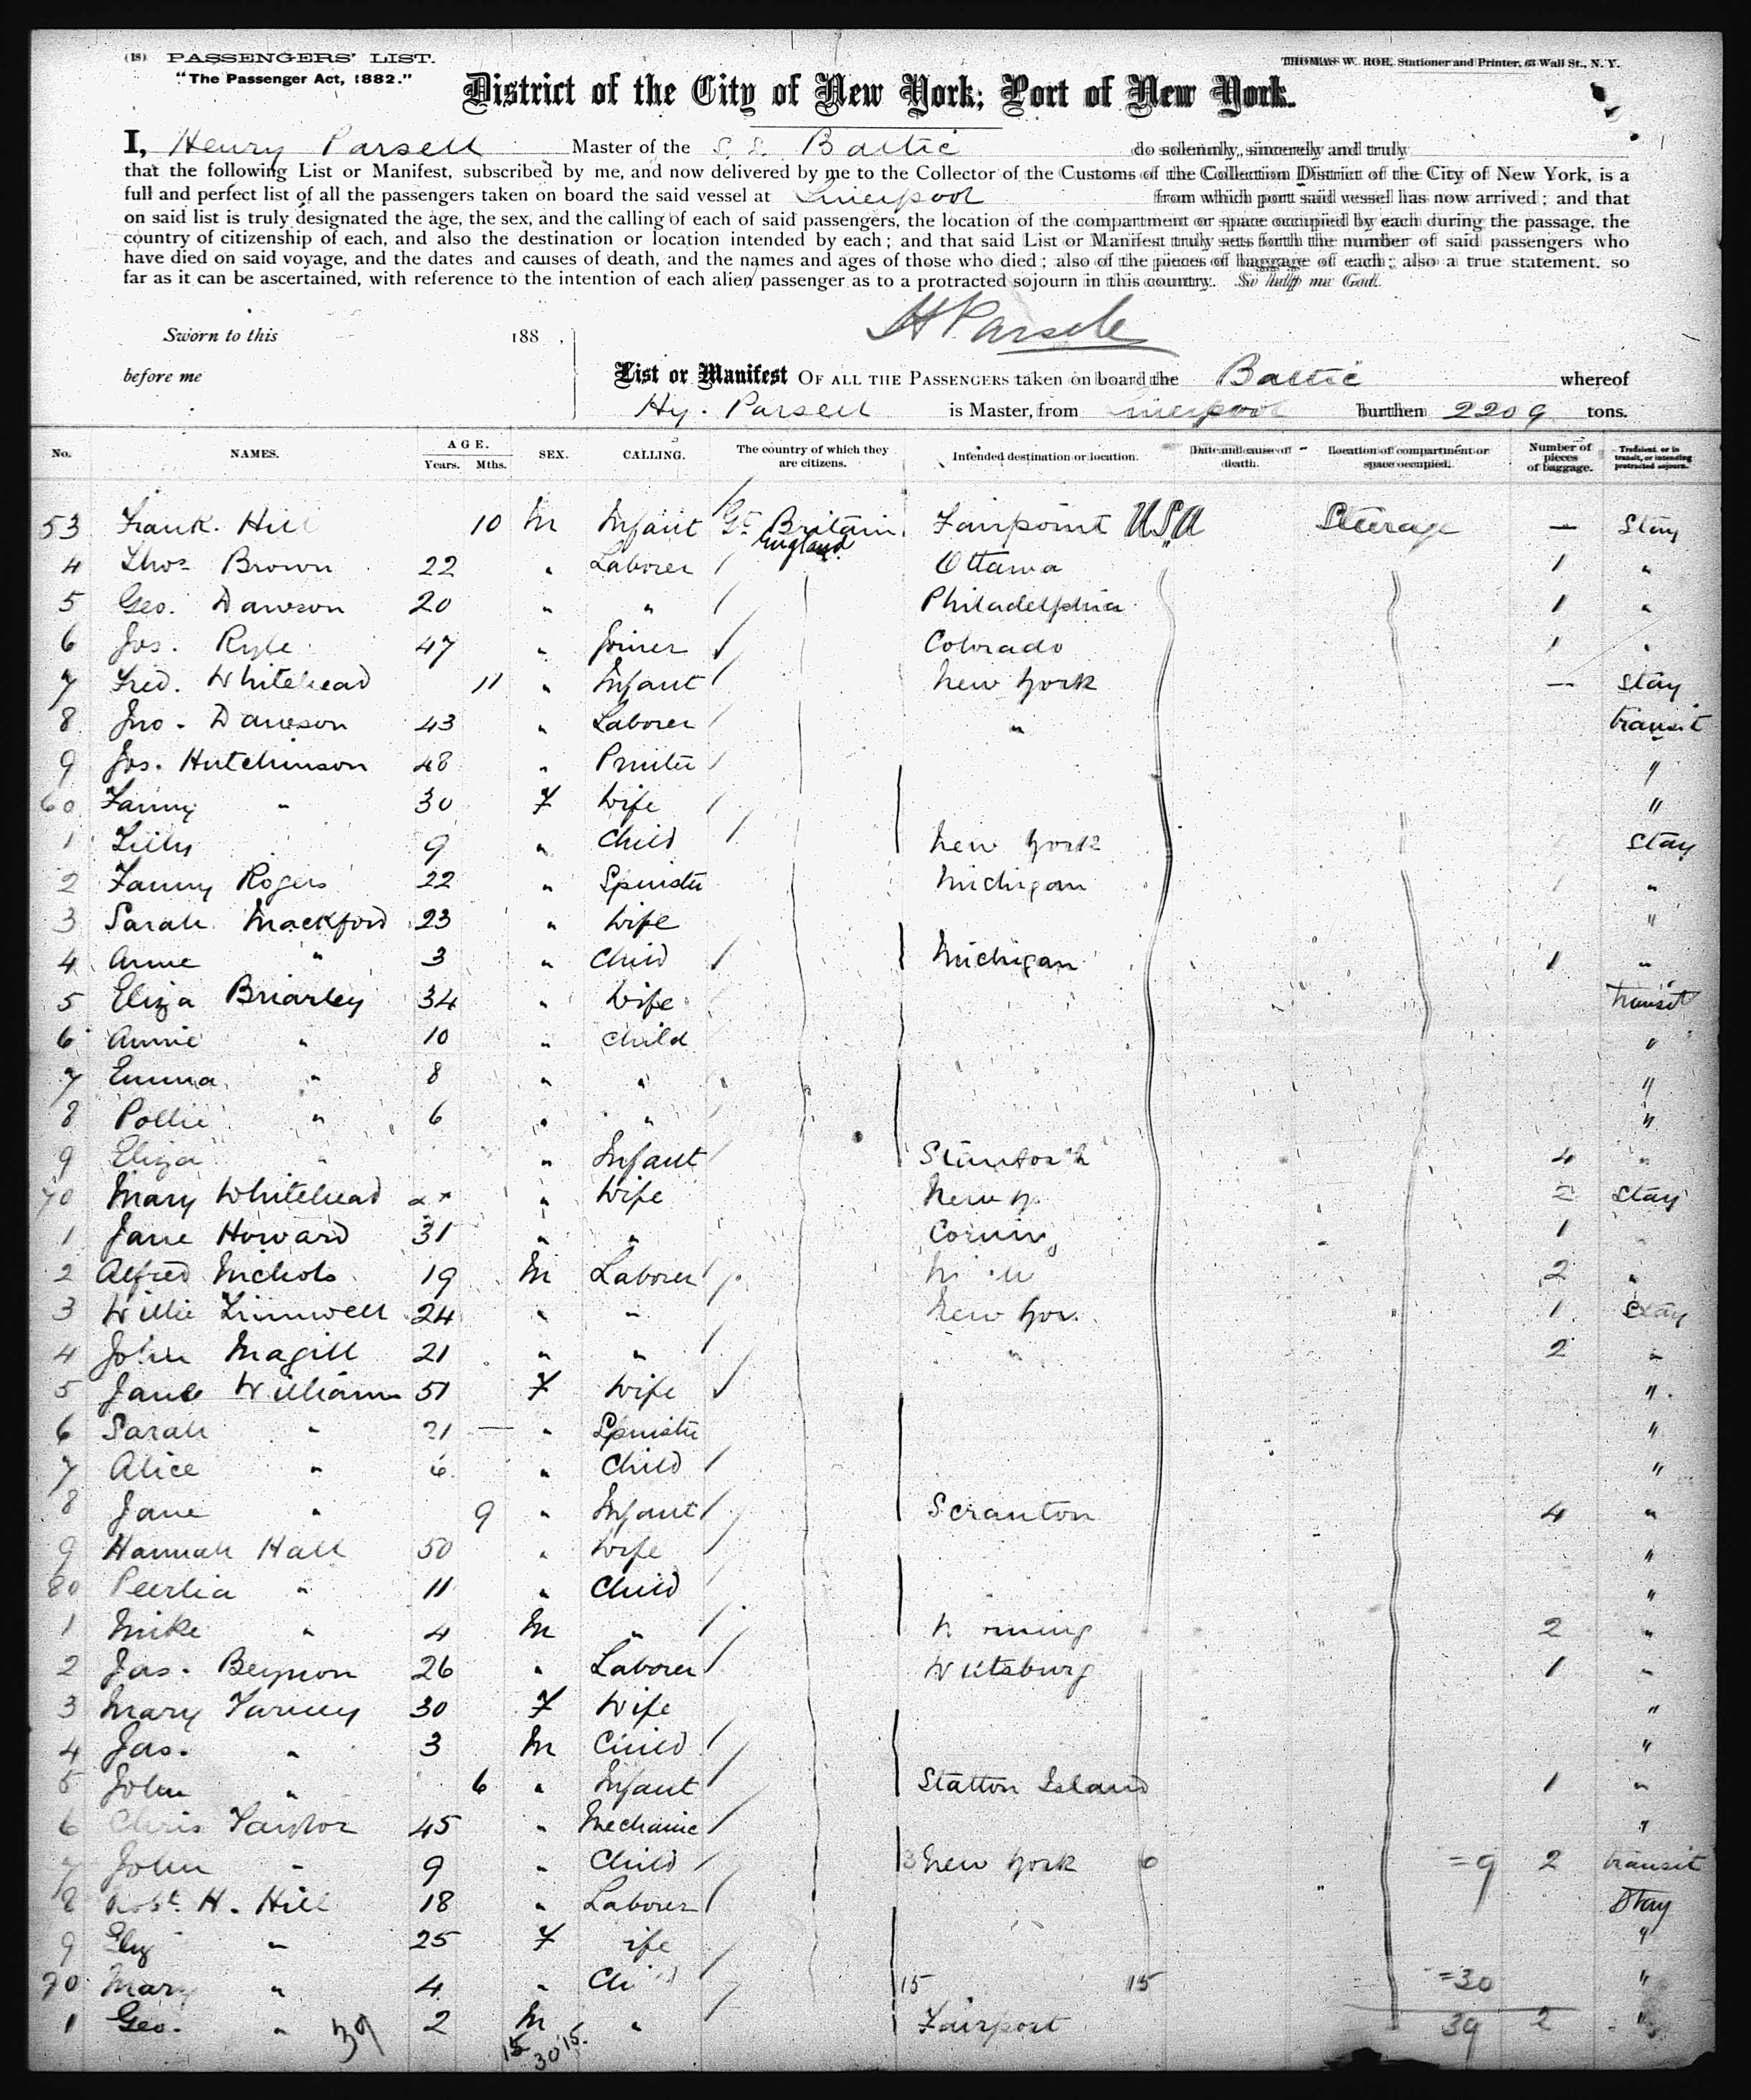 (18) PASSENGERS' LIST.
"The Passenger Act, 1882."
THOMAS W. ROE, Stationer and Printer, 63 Wall St., N. Y.
District of the City of New York; Port of New York.
I, Henry Parsell Master of the S. S. Baltic do solemnly, sincerely and truly
that the following List or Manifest, subscribed by me, and now delivered by me to the Collector of the Customs of the Collection District of the City of New York, is a
full and perfect list of all the passengers taken on board the said vessel at Liverpool from which port said vessel has now arrived; and that
on said list is truly designated the age, the sex, and the calling of each of said passengers, the location of the compartment or space occupied by each during the passage, the
country of citizenship of each, and also the destination or location intended by each; and that said List or Manifest truly sets forth the number of said passengers who
have died on said voyage, and the dates and causes of death, and the names and ages of those who died; also of the pieces of baggage of each; also a true statement, so
far as it can be ascertained, with reference to the intention of each alien passenger as to a protracted sojourn in this country. So help me God.
H Parsell
Sworn to this 188 ,
before me
List or Manifest OF ALL THE PASSENGERS taken on board the Baltic whereof
Hy. Parsell is Master, from Liverpool burthen 2209 tons.
No. NAMES. AGE. Years. Mths. SEX. CALLING. The country of which they are citizens. Intended destination or location. Date and cause of death. Location of compartment or space occupied. Number of pieces of baggage. Transient, or in transit, or intending protracted sojourn.
53 Frank Hill 10 M Infant Gt Britain England Fairpoint USA Steerage — Stay
4 Thos Brown 22 " Laborer Ottawa 1 "
5 Geo. Dawson 20 " " Philadelphia 1 "
6 Jos. Ryle 47 " Joiner Colorado 1 "
7 Fred. Whitehead 11 " Infant New York — Stay
8 Jno. Dawson 43 " Laborer " transit
9 Jos. Hutchinson 48 " Printer "
60 Fanny " 30 F Wife "
1 Lilly 9 " Child New York Stay
2 Fanny Rogers 22 " Spinster Michigan 1 "
3 Sarah Mackford 23 " Wife "
4 Anne " 3 " Child Michigan 1 "
5 Eliza Briarley 34 " Wife transit
6 Annie " 10 " Child "
7 Emma " 8 " " "
8 Pollie " 6 " " "
9 Eliza " " Infant 4 "
70 Mary Whitehead " Wife New Y. 2 Stay
1 Jane Howard 31 " " Corning 1 "
2 Alfred Nichols 19 M Laborer 2 "
3 Willie 24 " " New Yor 1 Stay
4 John Magill 21 " " " 2 "
5 Jane William 51 F Wife "
6 Sarah " 21 — " Spinster "
7 Alice " 6 " Child "
8 Jane " 9 " Infant Scranton 4 "
9 Hannah Hall 50 " Wife "
80 " 11 " Child "
1 Mike " 4 M " 2 "
2 Jas. Beynon 26 " Laborer 1 "
3 Mary 30 F Wife "
4 Jas. " 3 M Child "
5 John " 6 " Infant Statton Island 1 "
6 Chris Taylor 45 " Mechanic "
7 John " 9 " Child 3 New York 6 =9 2 transit
8 Robt. H. Hill 18 " Laborer Stay
9 Eliz " 25 F ife "
90 Mary " 4 " 15 15 =30 "
1 Geo. " 2 M " Fairport 39 2 "
39 15 30 15.